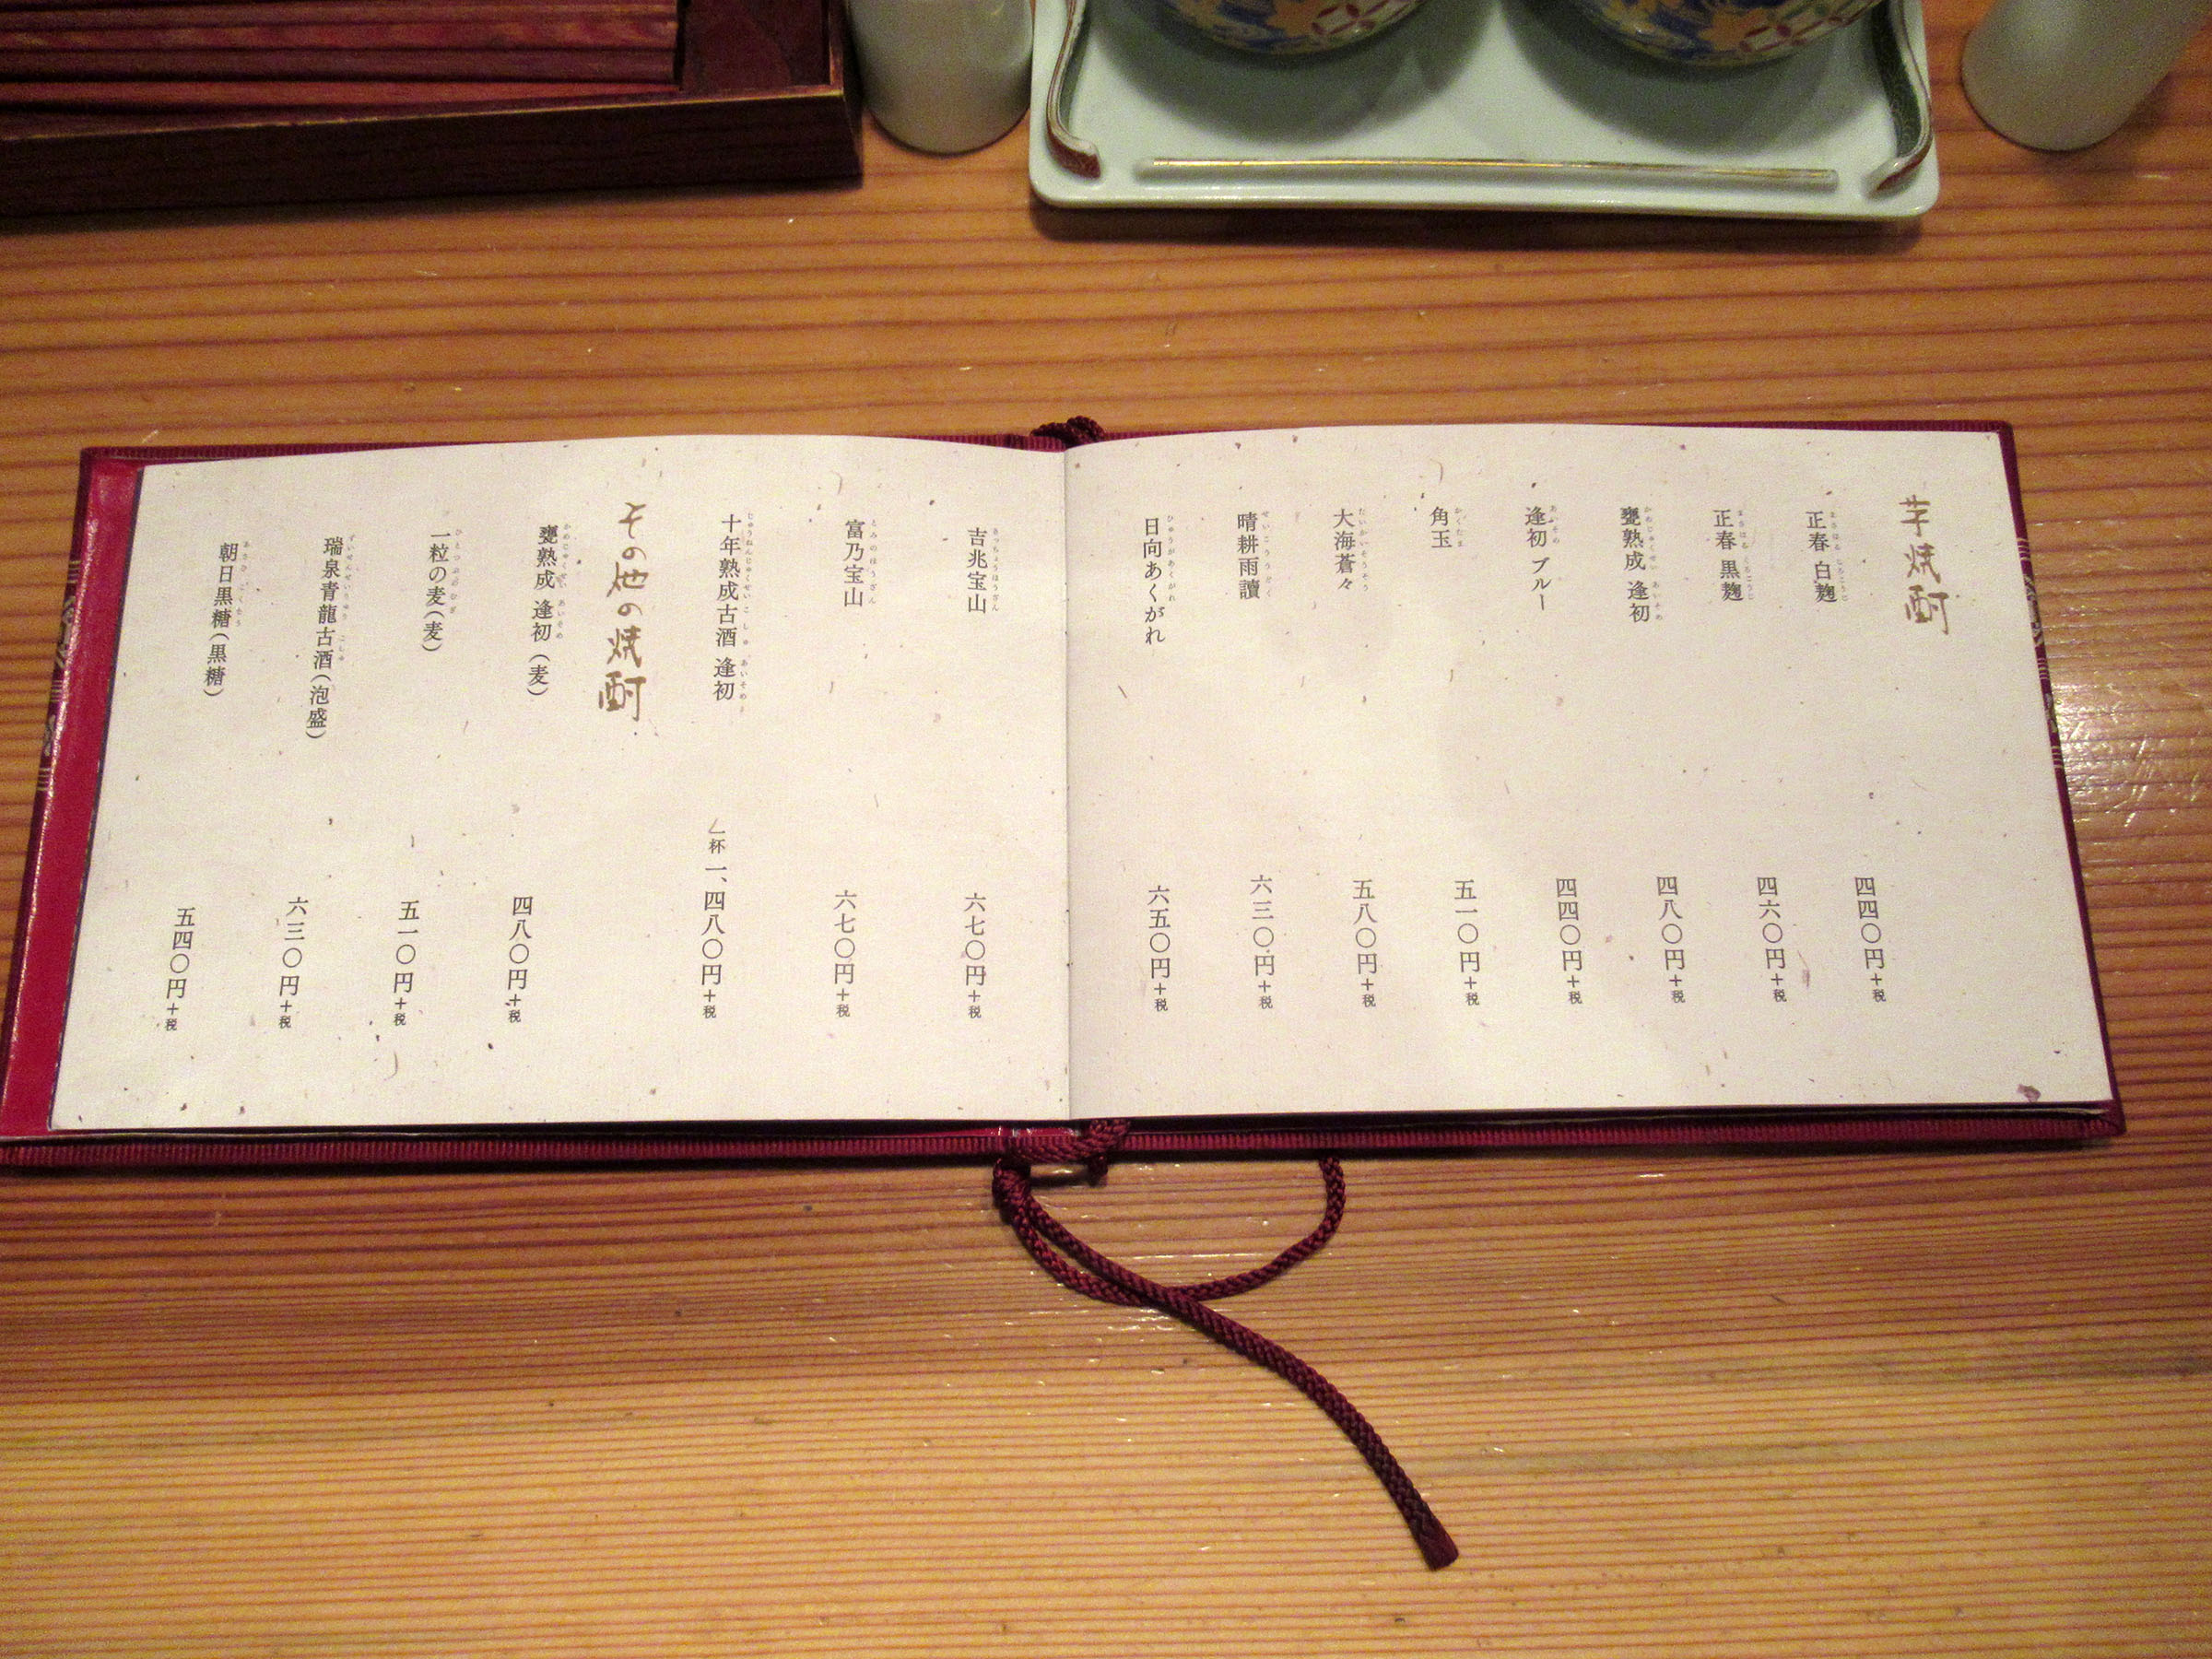 芋焼酎
正春 白麹 四四〇円+税
正春 黒麹 四六〇円+税
甕熟成 逢初 四八〇円+税
逢初 ブルー 四四〇円+税
角玉 五一〇円+税
大海蒼々 五八〇円+税
晴耕雨讀 六三〇円+税
日向あくがれ 六五〇円+税
吉兆宝山 六七〇円+税
富乃宝山 六七〇円+税
十年熟成古酒 逢初 一杯 一、四八〇円+税
その他の焼酎
甕熟成 逢初(麦) 四八〇円+税
一粒の麦(麦) 五一〇円+税
瑞泉青龍古酒(泡盛) 六三〇円+税
朝日黒糖(黒糖) 五四〇円+税